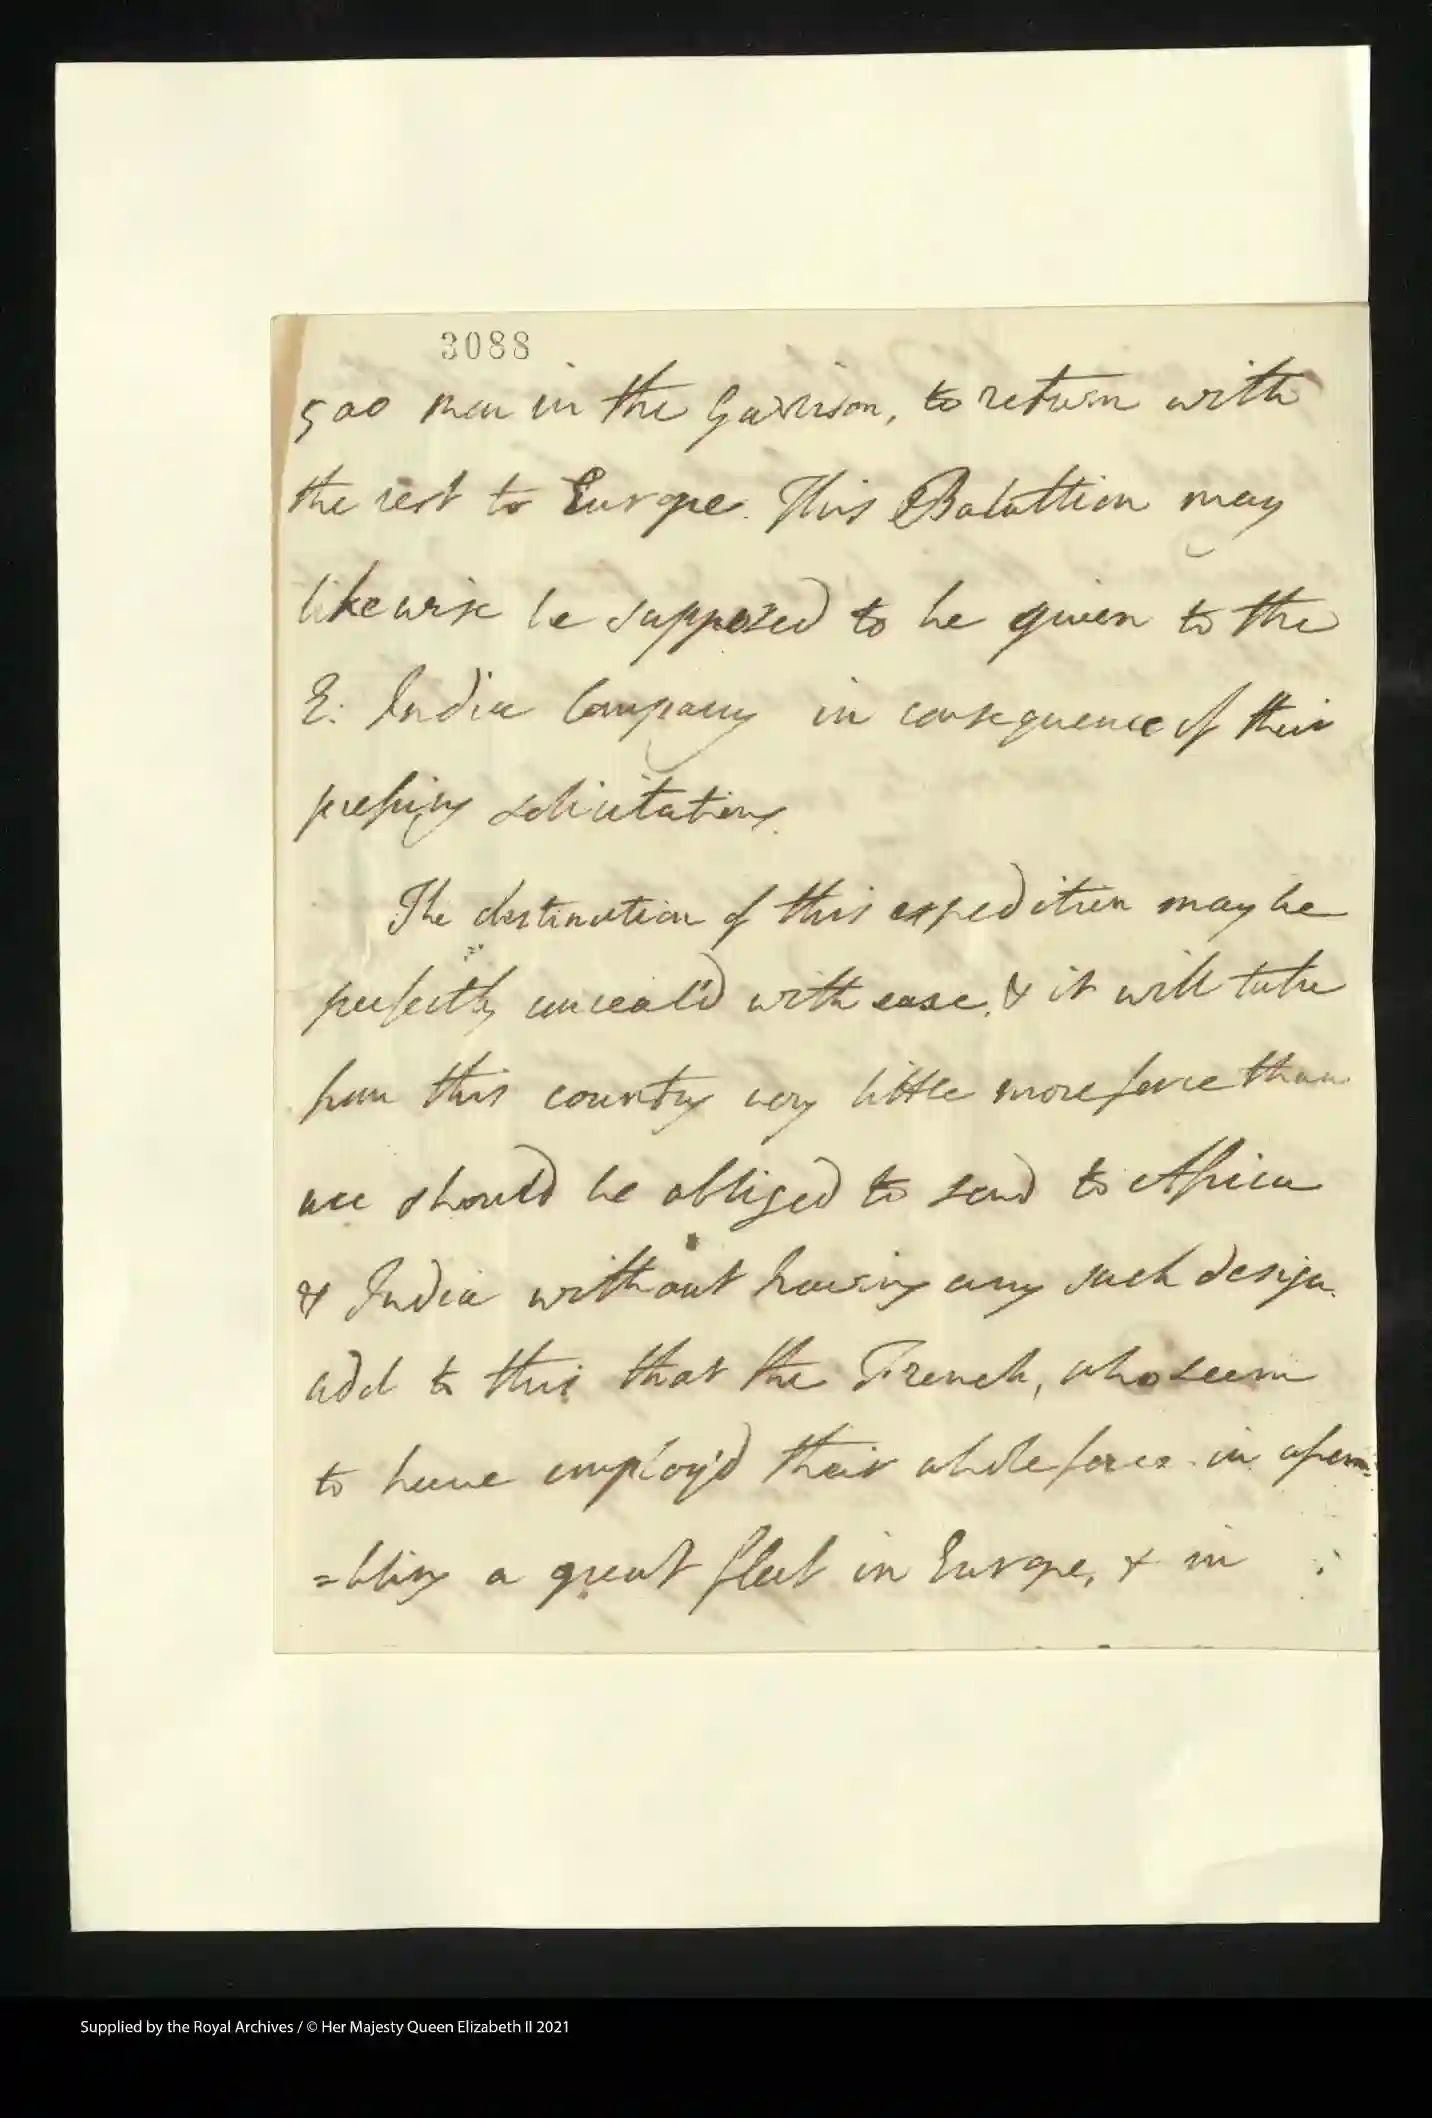 3088
500 men in the Garrison, to return with
the rest to Europe. This Batattion may
likewise be supposed to be given to the
E: India Company in consequence of their
pressing solicitations.
The destination of this expedition may be
perfectly conceal'd with ease, & it will take
from this country very little more force than
we should be obliged to send to Africa
& India without having any such design.
add to this that the French, who seem
to have employ'd their whole force in assem=
=bling a great fleet in Europe, & in
Supplied by the Royal Archives / © Her Majesty Queen Elizabeth II 2021